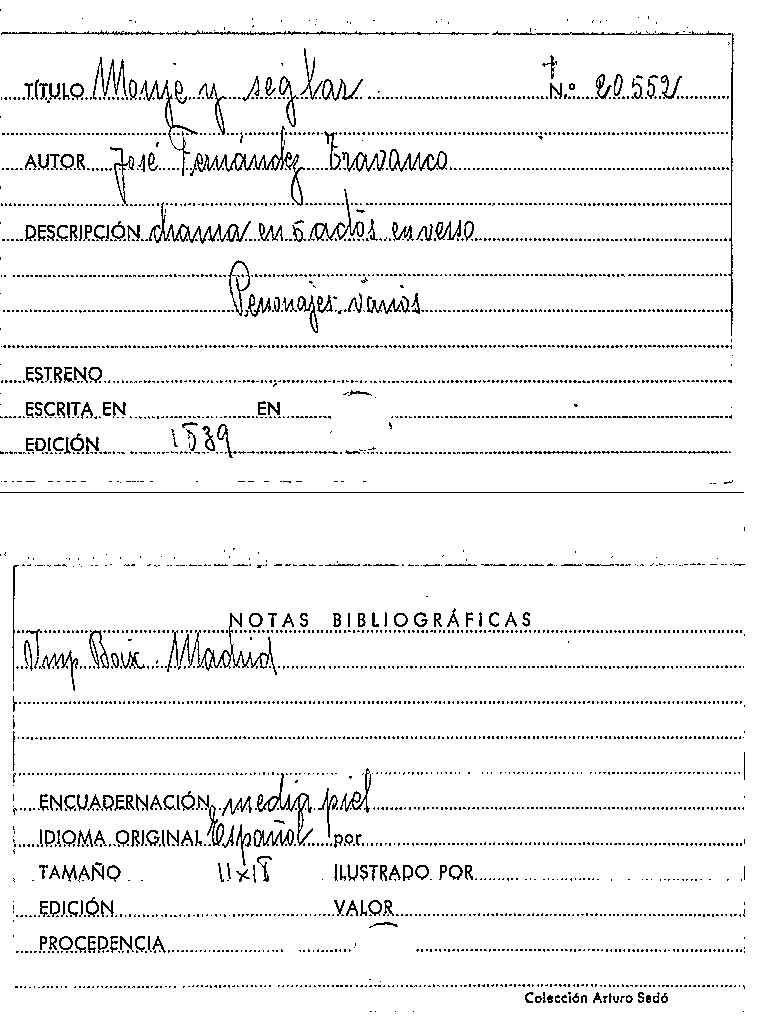 TÍTULO Monje y seglar N.º 20552
AUTOR José Fernández Travanco
DESCRIPCIÓN drama en 5 actos en verso
Personajes. varios
ESTRENO
ESCRITA EN EN
EDICIÓN 1839
NOTAS BIBLIOGRÁFICAS
Imp. Boix. Madrid
ENCUADERNACIÓN media piel
IDIOMA ORIGINAL Español por
TAMAÑO 11x18 ILUSTRADO POR
EDICIÓN VALOR
PROCEDENCIA
Colección Arturo Sedó